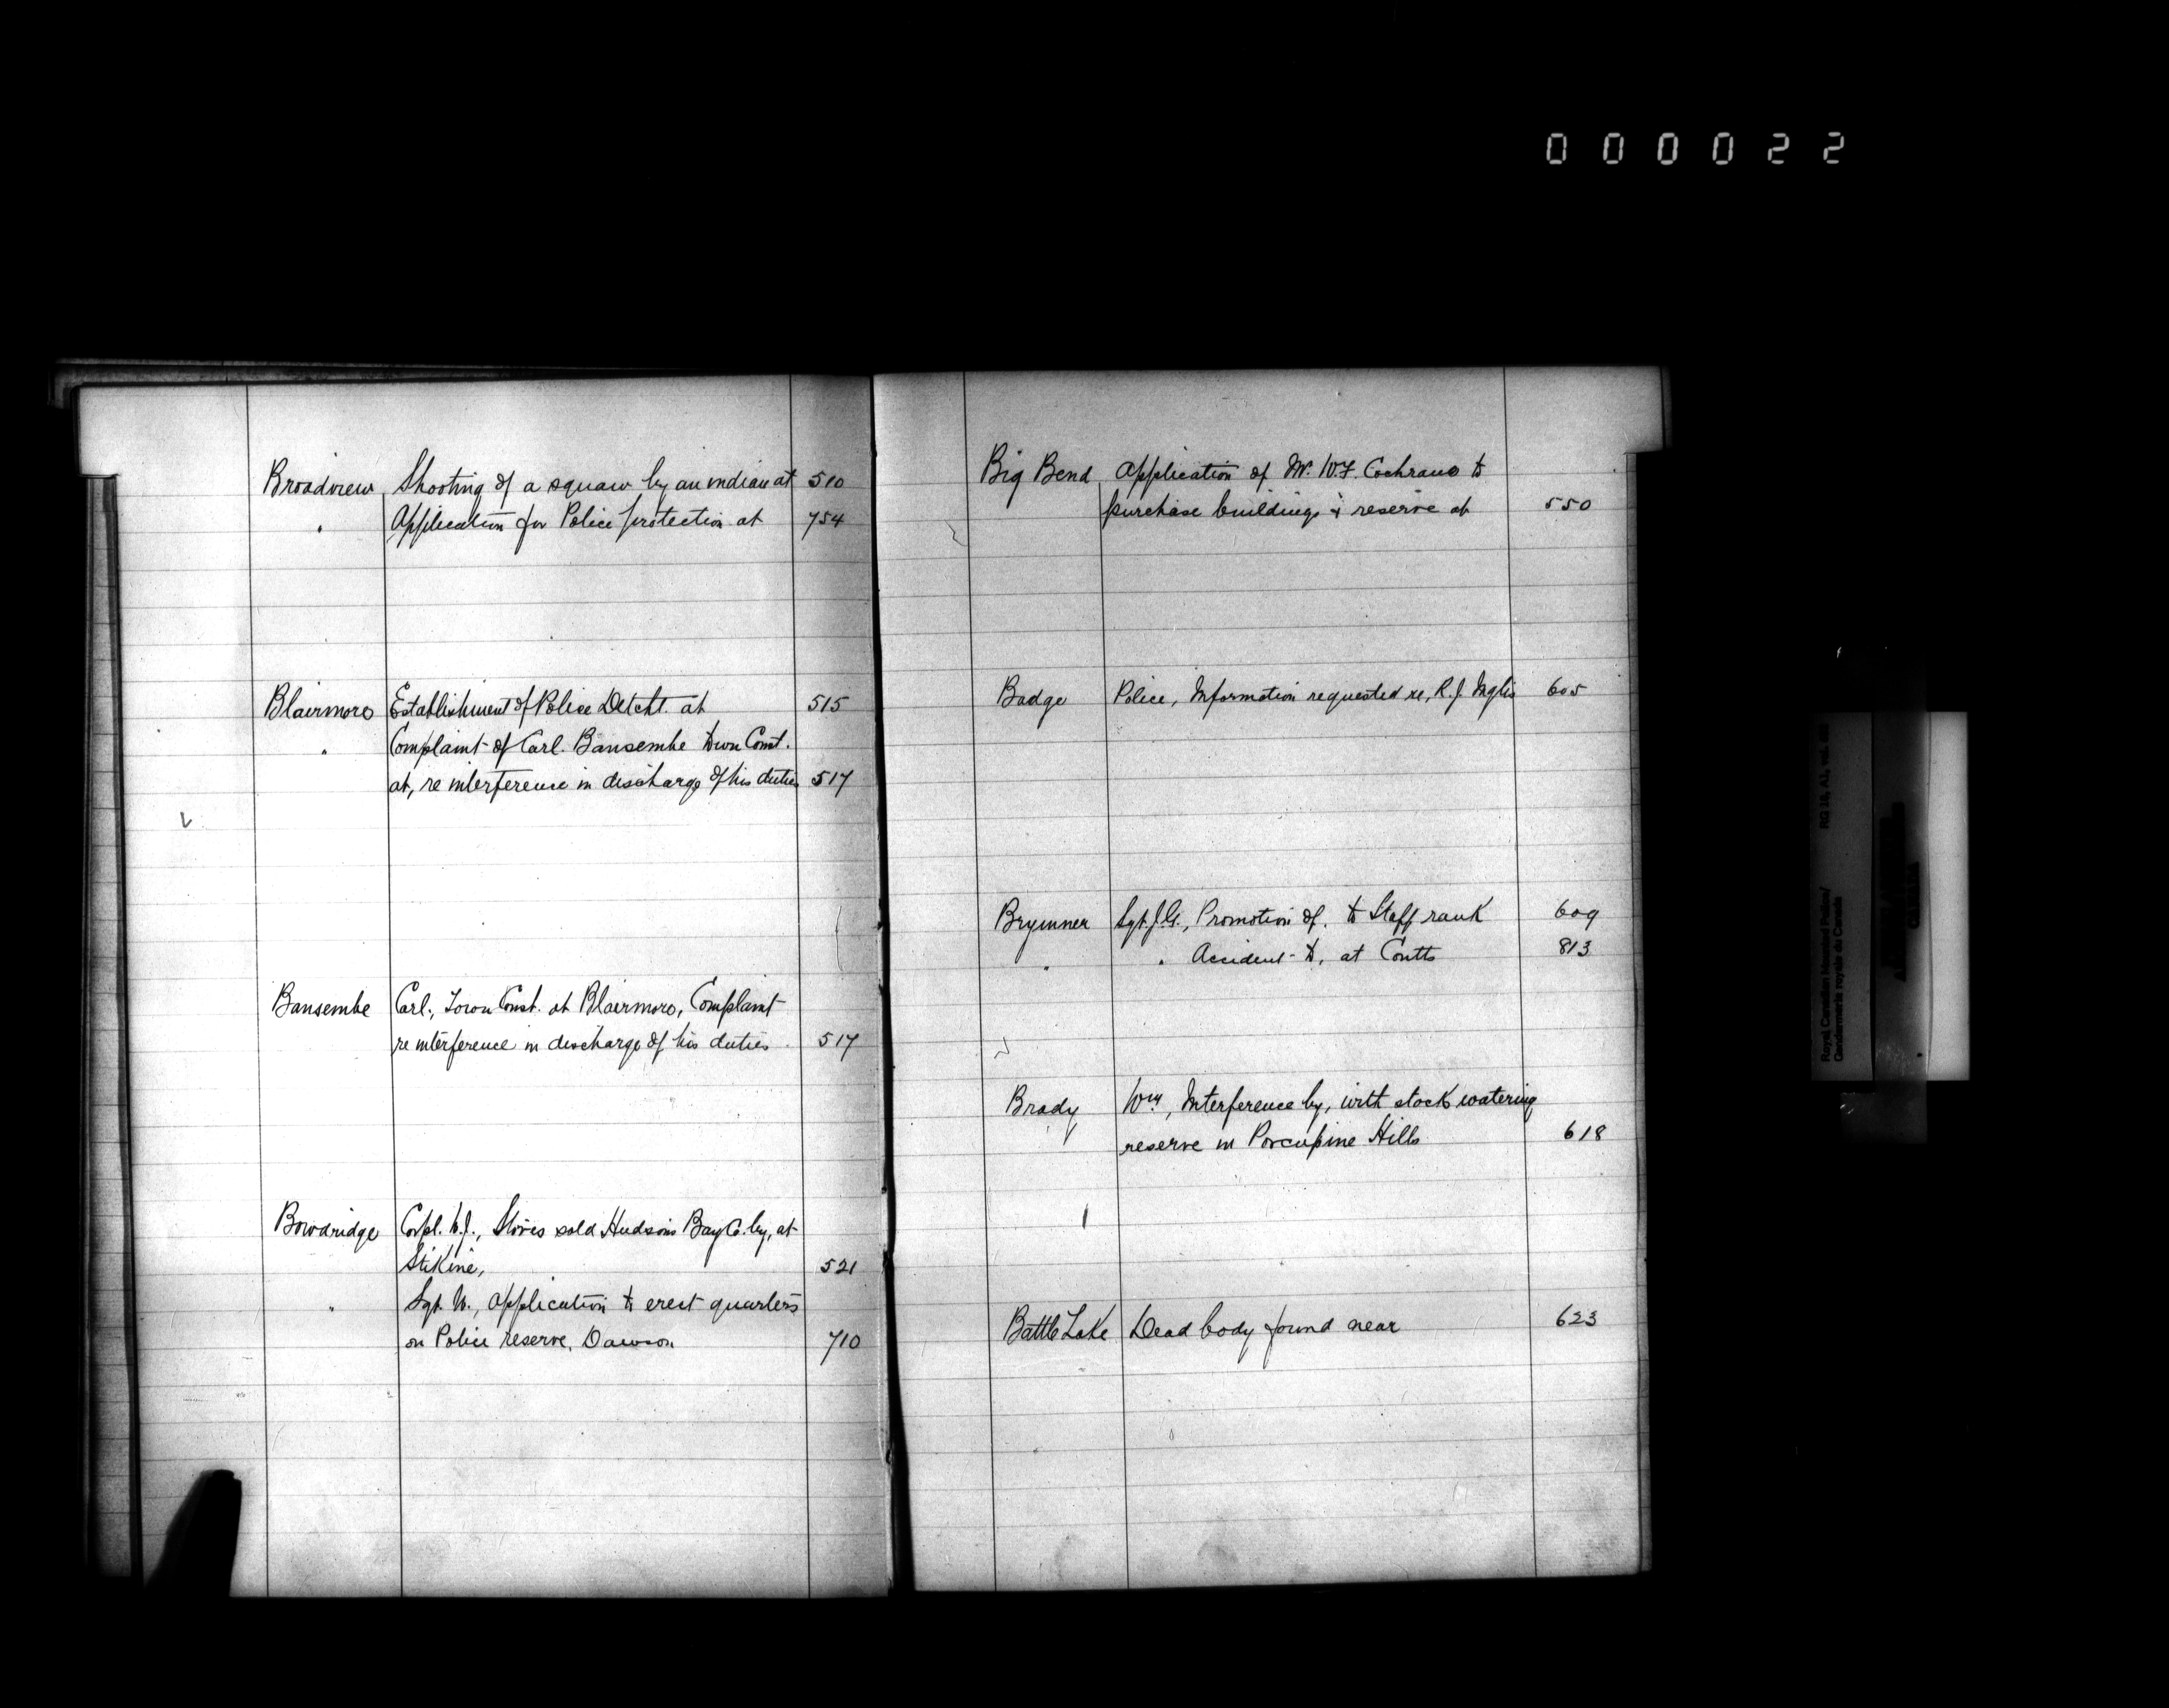 000022
Broadview Shooting of a squaw by an indian at 510
" Application for Police protection at 754
Blairmore Establishment of Police Detcht. at 515
" Complaint of Carl. Bansembe Town Const.
at, re interference in discharge of his duties 517
Bansembe Carl., Town Const. at Blairmore, Complaint
re interference in discharge of his duties 517
Bowdridge Corpl. W.J., Stores sold Hudsons Bay Co. by, at
Stikine, 521
" Sgt. W., application to erect quarters
on Police reserve, Dawson 710
Big Bend Application of Mr. W.F. Cochrane to
purchase buildings & reserve at 550
Badge Police, Information requested re, R.J. Inglis 605
Brymner Sgt. J.G., Promotion of, to Staff rank 609
" " Accident to, at Coutts 813
Brady Wm, Interference by, with stock watering
reserve in Porcupine Hills 618
Battle Lake Dead body found near 623
Royal Canadian Mounted Police/
Gendarmerie royale du Canada
RG 18, A1, vol.